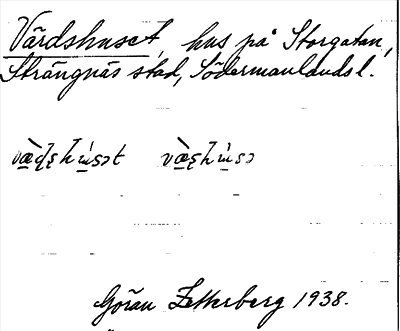 Värdshuset, hus på Storgatan,
Strängnäs stad, Södermanlands l.
Göran Zetterberg 1938.